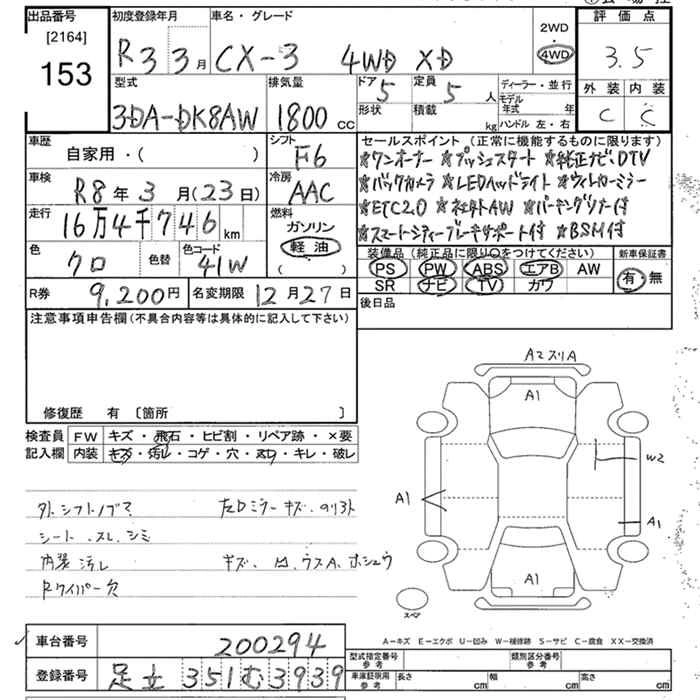 出品番号 初度登録年月 車名・グレード 評価点
[2164] 153 R3年3月 CX-3 4WD XD 2WD 4WD 3.5
型式 排気量 ドア 定員 ディーラー・並行 外装 内装
3DA-DK8AW 1800cc 5 5人 モデル年式 年 C C
形状 積載 kg ハンドル 左・右
車歴 シフト セールスポイント(正常に機能するものに限ります)
自家用・( ) F6 ☆ワンオーナー ☆プッシュスタート ☆純正ナビ、DTV
車検 冷房 ☆バックカメラ ☆LEDヘッドライト ☆ウィンカーミラー
R8年3月(23日) AAC ☆ETC2.0 ☆社外AW ☆パーキングソナー付
走行 燃料 ☆スマートシティーブレーキサポート付 ☆BSM付
16万4千746km ガソリン 軽油 ( )
色 色替 色コード 装備品(純正品に限り○をつけてください) 新車保証書
クロ 41W PS PW ABS エアB AW 有・無
SR ナビ TV カワ
R券 9,200円 名変期限 12月27日 後日品
注意事項申告欄(不具合内容等は具体的に記入して下さい)
A2 スリA
A1
修復歴 有 〔箇所 〕
検査員 FW キズ・飛石・ヒビ割・リペア跡・×要
記入欄 内装 キズ・汚レ・コゲ・穴・スレ・キレ・破レ
W2
A1 A1
外、シフトノブマ 左Dミラーキズ、
シート、スレ、シミ
内装汚レ キズ、凹、ウスA、ホシュウ
Rワイパー欠 A1
スペア
A-キズ E-エクボ U-凹み W-補修跡 S-サビ C-腐食 XX-交換済
車台番号 200294 型式指定番号 参考 類別区分番号 参考
登録番号 足立 351 む 3939 車庫証明用 参考 長さ cm 幅 cm 高さ cm